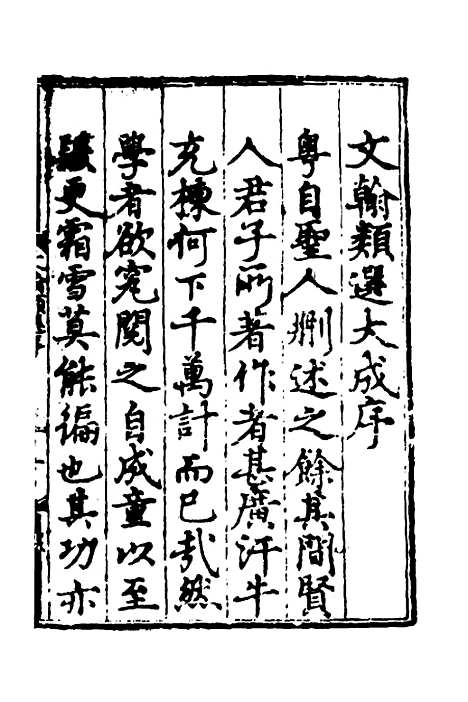 文翰類選大成序
粵自聖人刪述之餘其間賢
人君子所著作者甚廣汗牛
充棟何下千萬計而已哉然
學者欲究閱之自成童以至
髮更霜雪莫能徧也其功亦